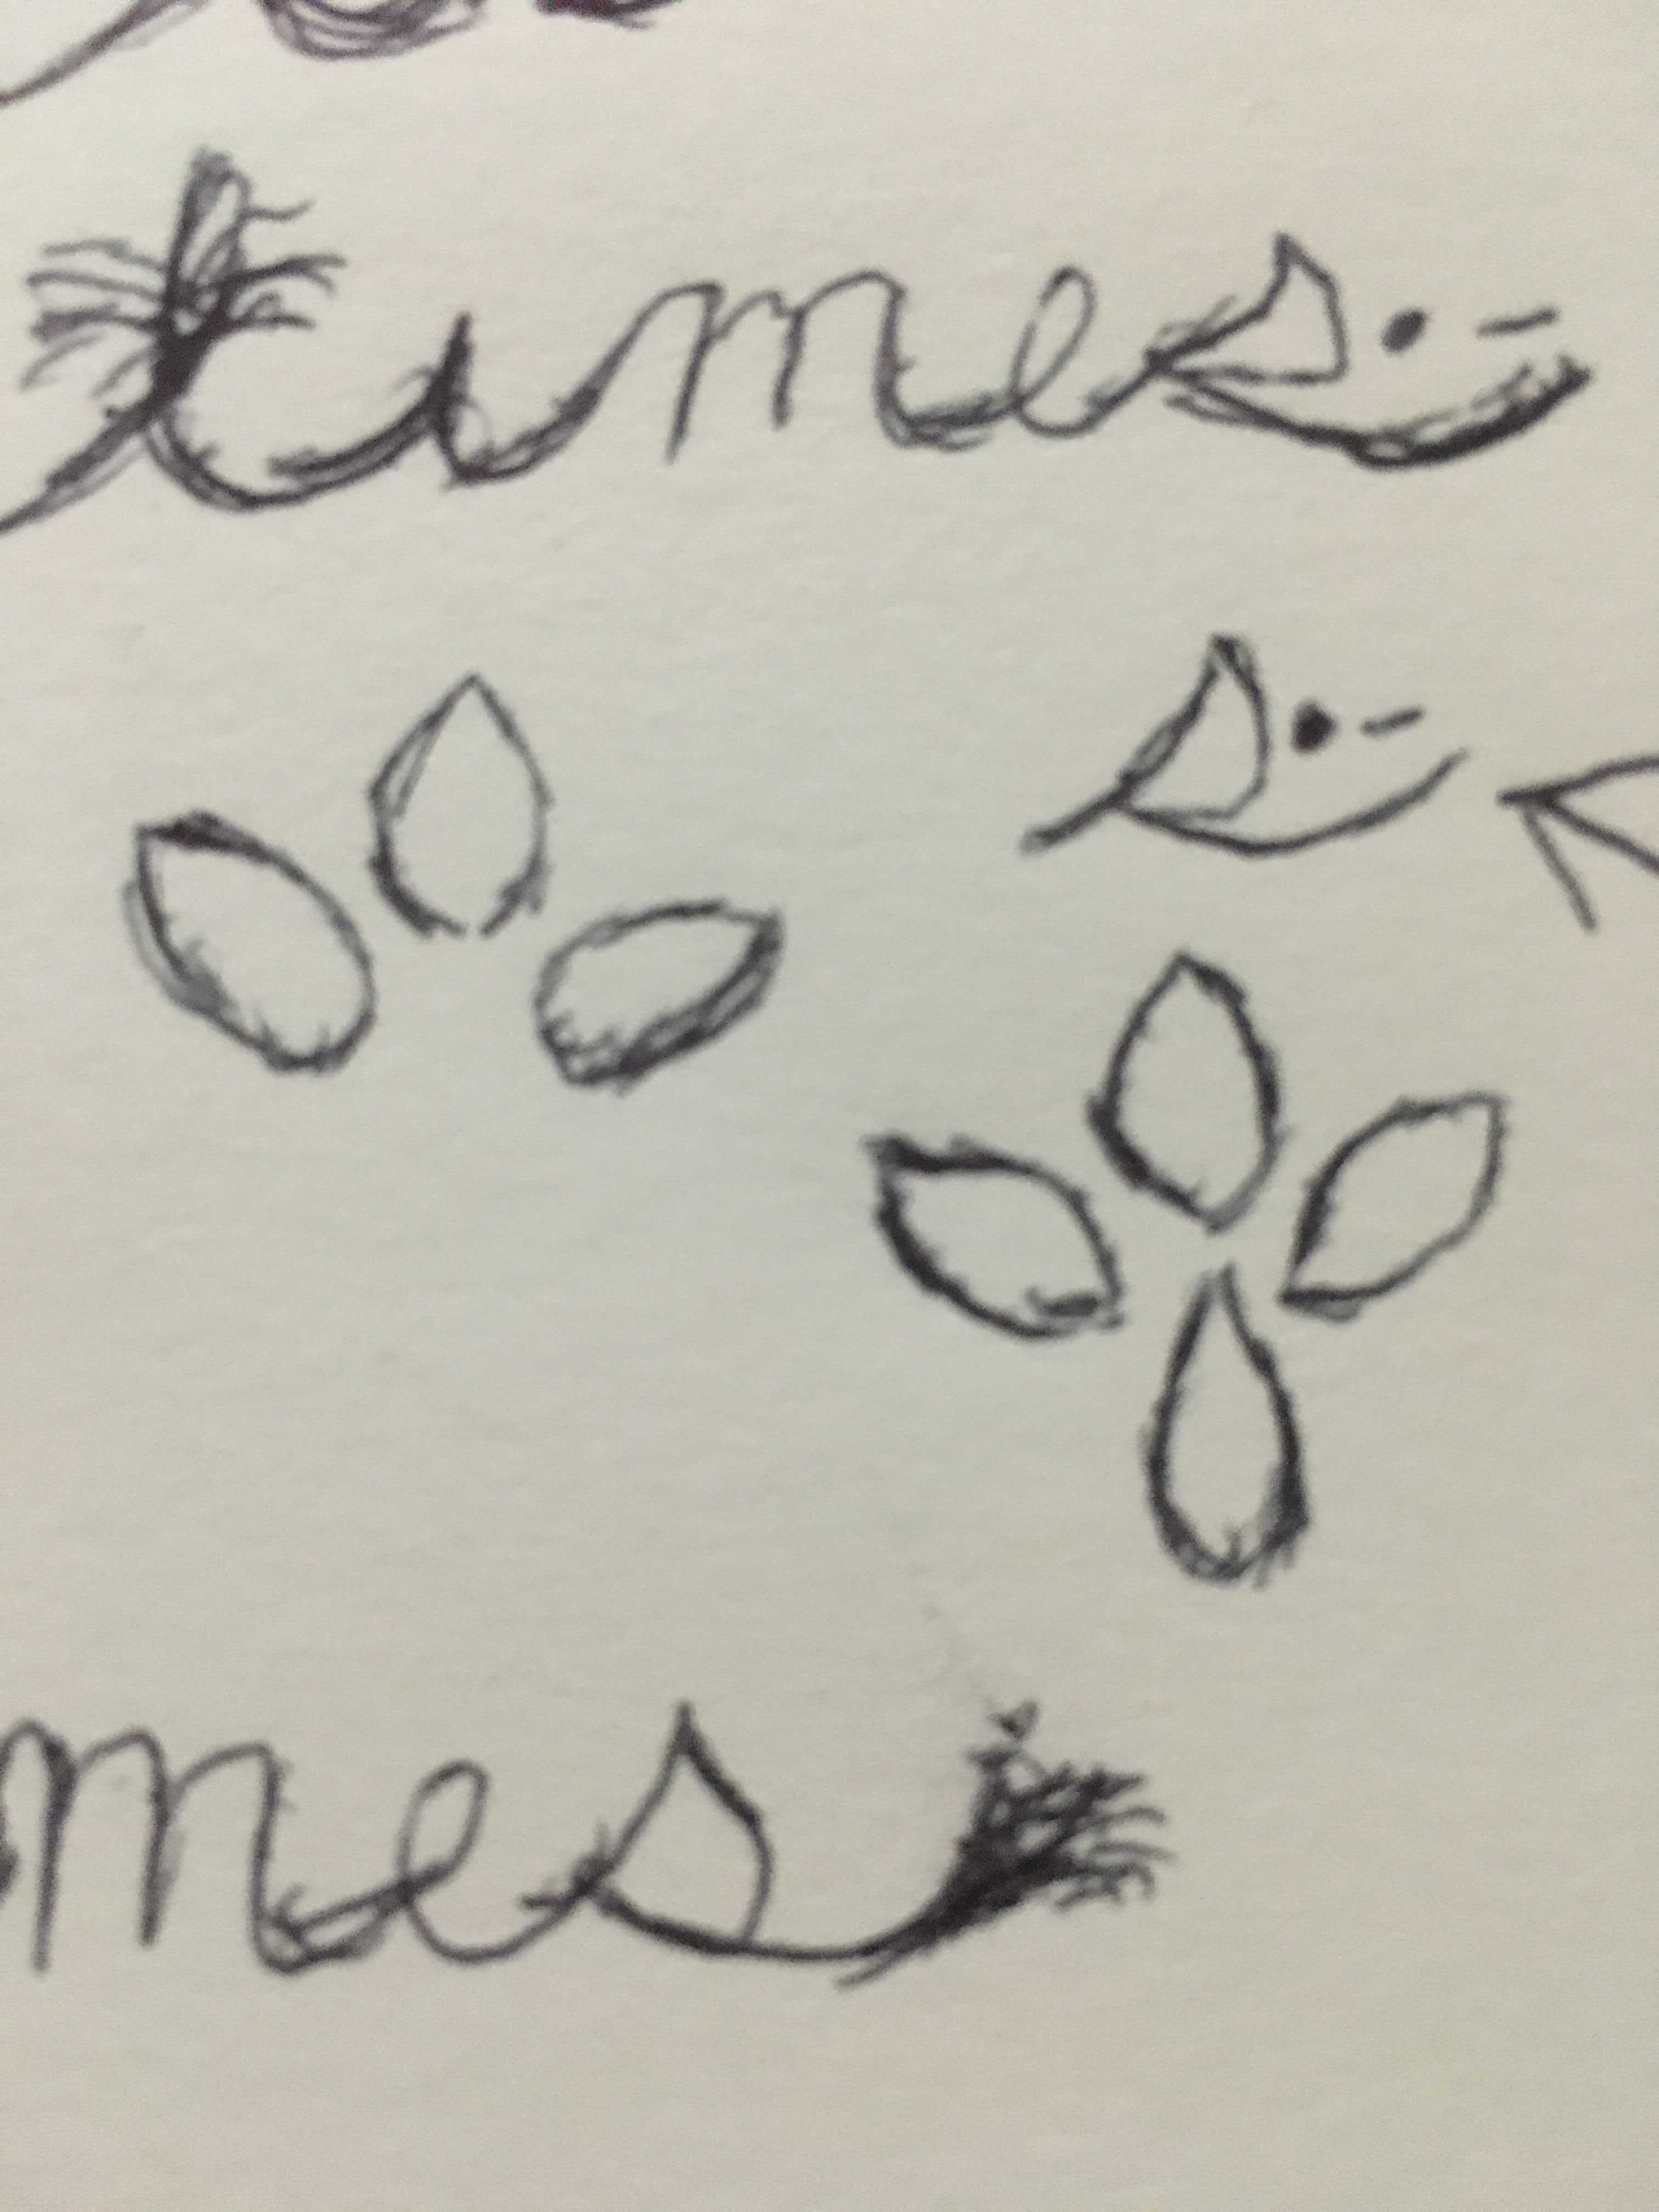 times
s
mes